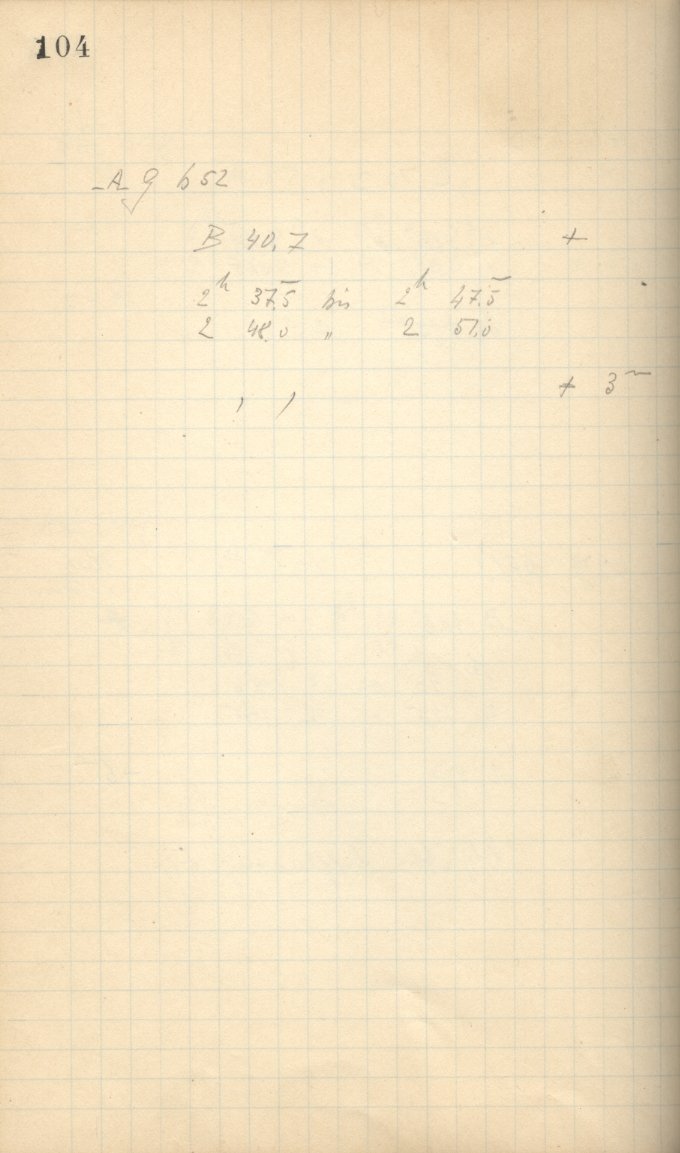 104
A g b 52
B 40,7 +
2h 37,5 bis 2h 47,5
2 48,0 „ 2 51,0
, , + 3m